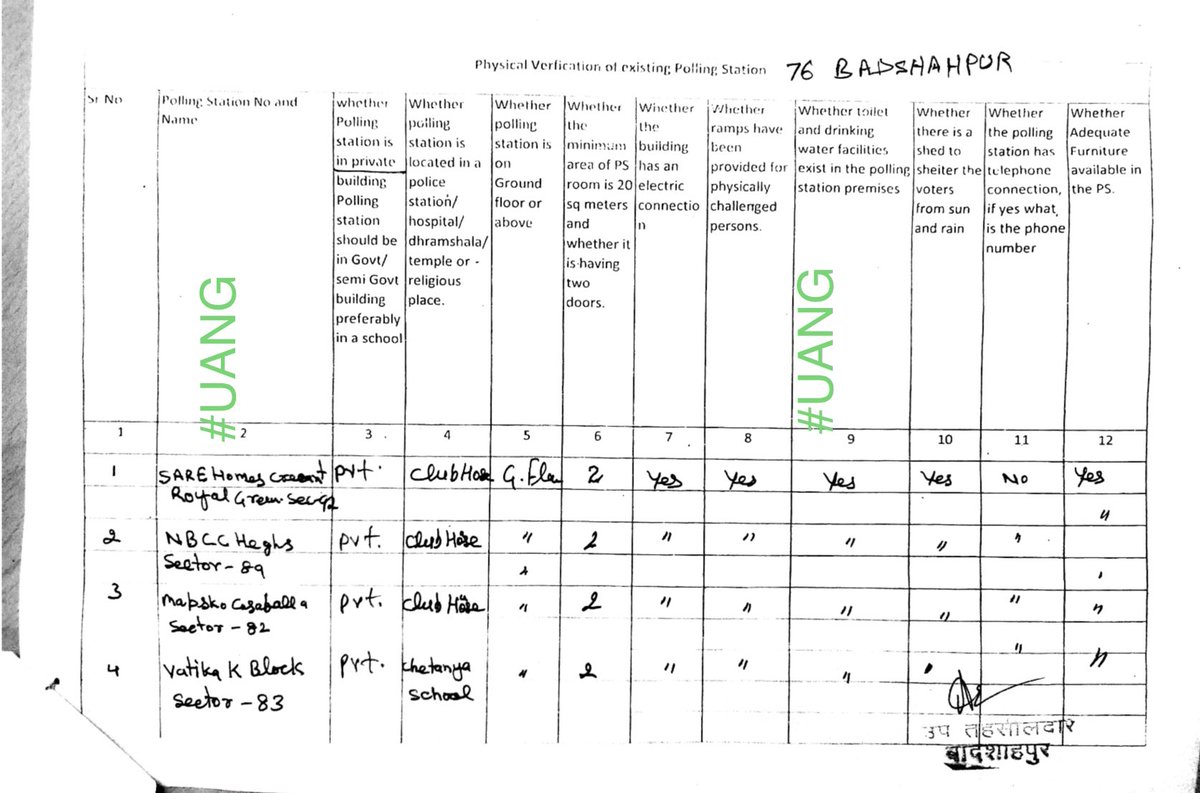 Physical Verfication of existing Polling Station 76 BADSHAHPUR
Sr No
Polling Station No and
Name
whether
Polling
station is
in private
building
Polling
station
should be
in Govt/
semi Govt
building
preferably
in a school
Whether
polling
station is
located in a
police
station/
hospital/
dhramshala/
temple or -
religious
place.
Whether
polling
station is
on
Ground
floor or
above
Whether
the
minimum
area of PS
room is 20
sq meters
and
whether it
is having
two
doors.
Whether
the
building
has an
electric
connectio
n
Whether
ramps have
been
provided for
physically
challenged
persons.
Whether toilet
and drinking
water facilities
exist in the polling
station premises
Whether
there is a
shed to
shelter the
voters
from sun
and rain
Whether
the polling
station has
telephone
connection,
if yes what
is the phone
number
Whether
Adequate
Furniture
available in
the PS.
#UANG
#UANG
1 2 3 4 5 6 7 8 9 10 11 12
1 SARE Homes pvt. Club Hose G. 2 Yes Yes Yes Yes No Yes
Royal Green Sec-92
"
2 NBCC Heghs pvt. Club Hose " 2 " " " " "
Sector - 89 "
3 Mapsko Casaballa pvt. Club Hose " 2 " " " " " "
Sector - 82 "
4 Vatika K Block pvt. Chetanya " 2 " " " " "
Sector - 83 School
उप तहसीलदार
बादशाहपुर